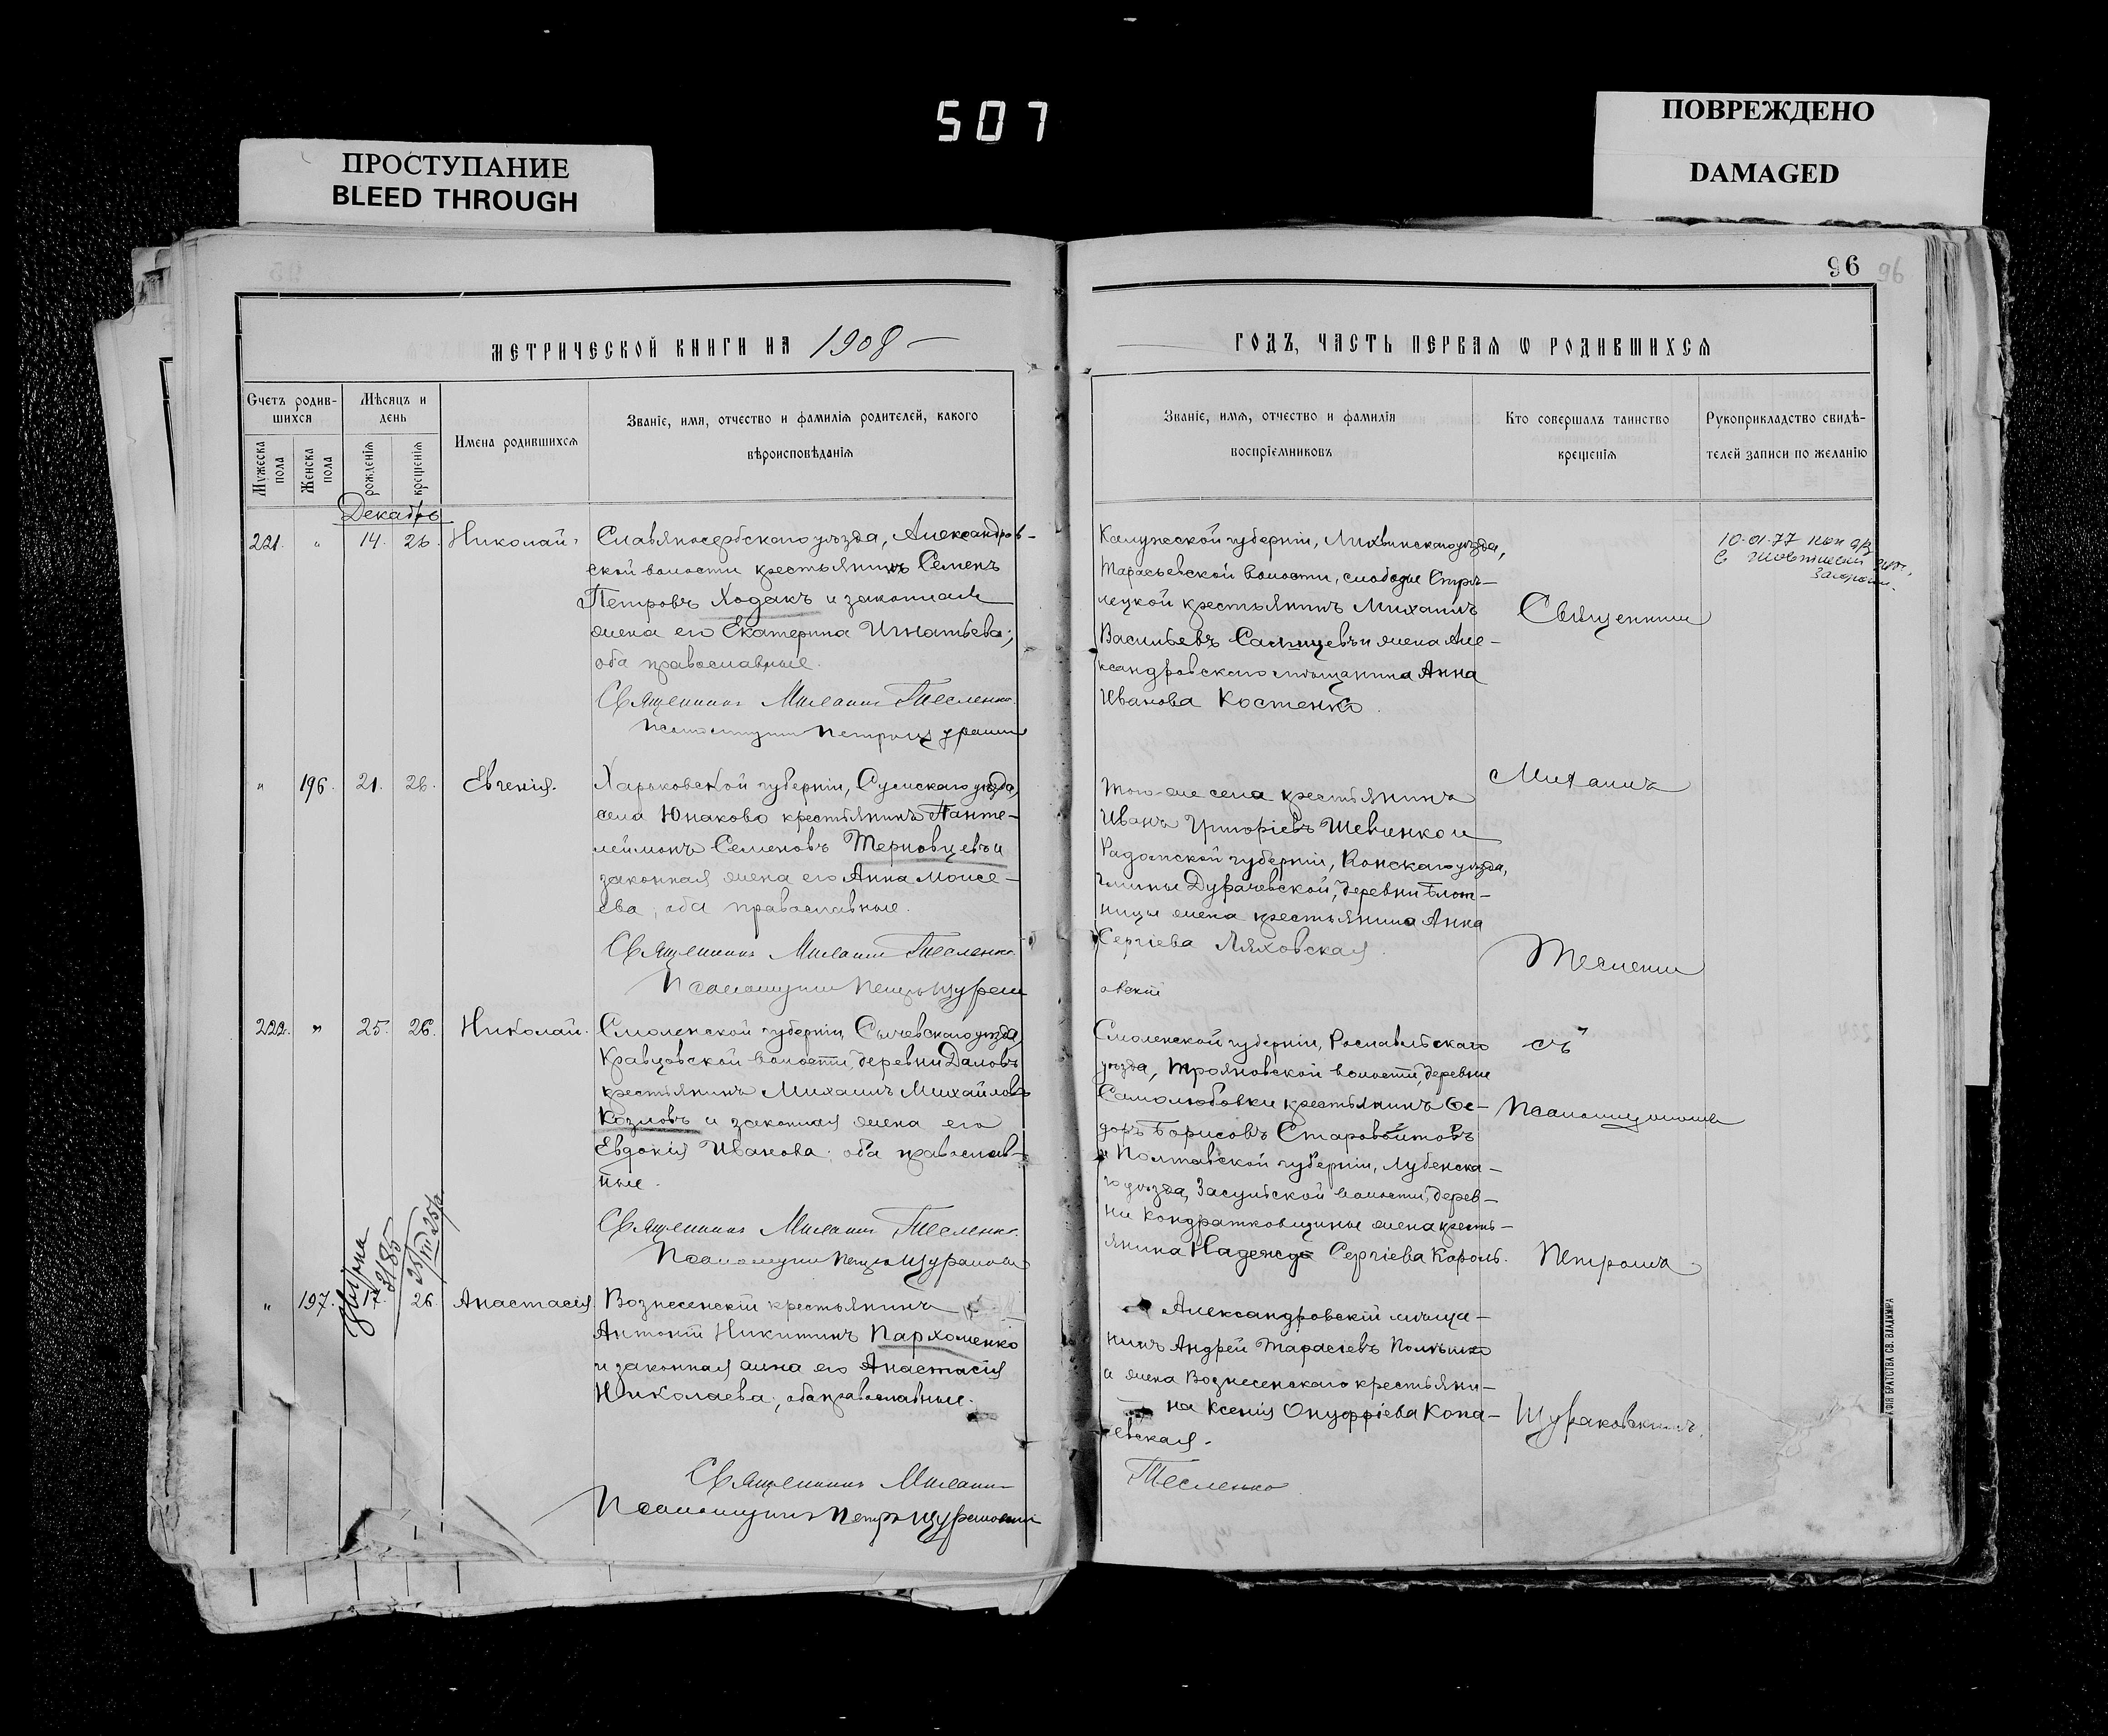 507
ПРОСТУПАНИЕ
BLEED THROUGH
ПОВРЕЖДЕНО
DAMAGED
96 96
МЕТРИЧЕСКОЙ КНИГИ НА 1908
Счетъ родив-
шихся
Мѣсяцъ и
день
Мужеска
пола
Женска
пола
рожденія
крещенія
Имена родившихся
Званіе, имя, отчество и фамилія родителей, какого
вѣроисповѣданія
Декабрь
221. " 14. 26. Николай.
Славяносербскаго уѣзда, Александров-
ской волости крестьянинъ Семенъ
Петровъ Ходакъ и законная
жена его Екатерина Игнатьева;
оба православные.
Священникъ Михаилъ Тесленко.
Псаломщикъ Петръ
" 196. 21. 26. Евгенія.
Харьковской губерніи, Сумскаго уѣзда,
села Юнаково крестьянинъ Панте-
леймонъ Семеновъ Терновцевъ и
законная жена его Анна Моисе-
ева; оба православные.
Священникъ Михаилъ Тесленко.
Псаломщикъ Петръ
222. " 25. 26. Николай.
Смоленской губерніи, Сычевскаго уѣзда,
Кравцовской волости, деревни
крестьянинъ Михаилъ Михайловъ
Козловъ и законная жена его
Евдокія Иванова; оба православ-
ные.
Священникъ Михаилъ Тесленко.
Псаломщикъ Петръ
" 197. 17. 26. Анастасія.
Вознесенскій крестьянинъ
Антоній Никитинъ Пархоменко
и законная жена его Анастасія
Николаева; оба православные.
Священникъ Михаилъ
Псаломщикъ Петръ
ГОДЪ, ЧАСТЬ ПЕРВАЯ Ѡ РОДИВШИХСЯ
Званіе, имя, отчество и фамилія
воспріемниковъ
Кто совершалъ таинство
крещенія
Рукоприкладство свидѣ-
телей записи по желанію
Калужской губерніи, Лихвинскаго уѣзда,
волости, слободы Стрѣ-
лецкой крестьянинъ Михаилъ
Васильевъ и жена Але-
ксандровскаго мѣщанина Анна
Иванова Костенко.
10.01.77
Того-же села крестьянинъ
Иванъ Григоріевъ Шевченко и
Радомской губерніи, Конскаго уѣзда,
гмины деревни
жена крестьянина Анна
Сергіева Ляховская.
овскій
Смоленской губерніи, Рославльскаго
уѣзда, Трояновской волости, деревни
Самолюбовки крестьянинъ Ѳе-
доръ Борисовъ Старовойтовъ
и Полтавской губерніи, Лубенска-
го уѣзда, Засульской волости, дерев-
ни жена кресть-
янина Надежда Сергіева Король.
Александровскій мѣща-
нинъ Андрей Тарасіевъ
и жена Вознесенскаго крестьяни-
на Ксенія Онуфріева Копа-
евская.
Тесленко
Священникъ
Михаилъ
Тесленко
съ
Псаломщикомъ
Петромъ
Щураковскимъ.